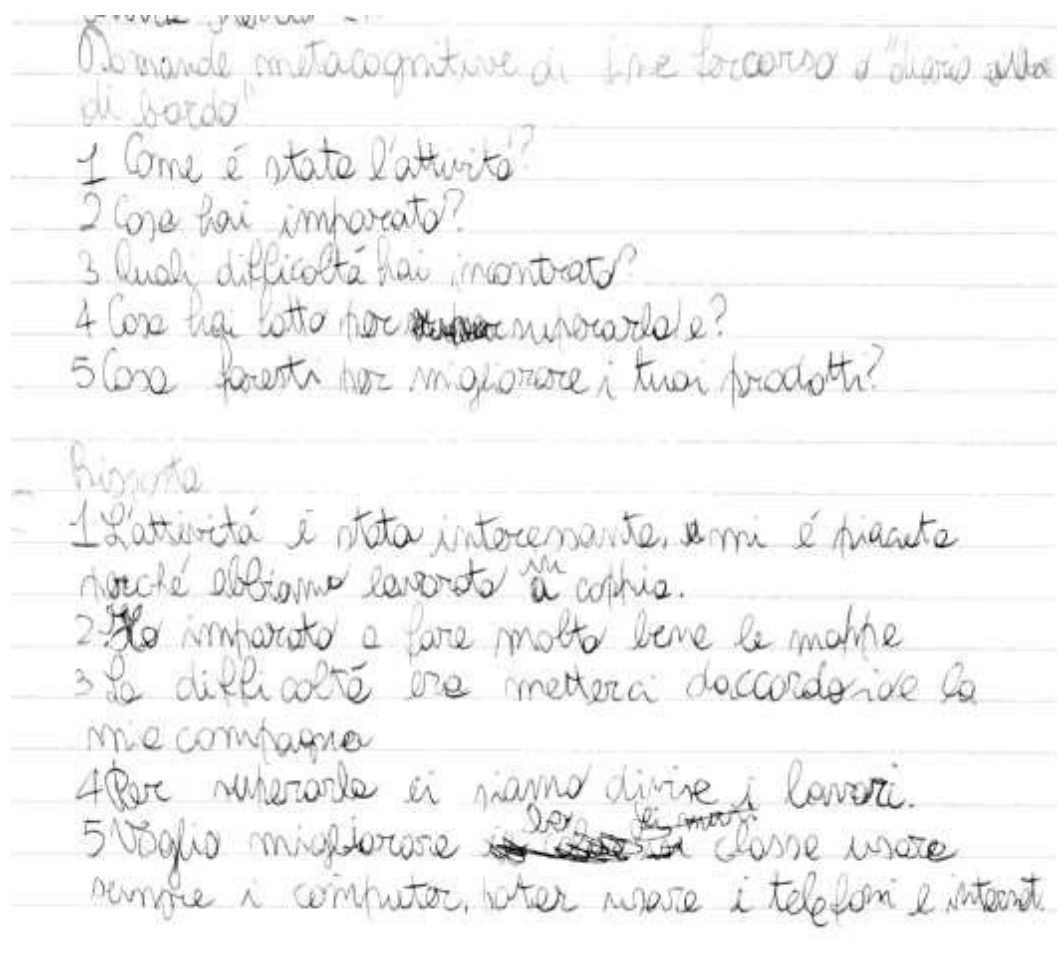 Domande metacognitive di fine percorso o "diario
di bordo"
1 Come é stata l'attività?
2 Cosa hai imparato?
3 Quali difficoltá hai incontrato?
4 Cosa hai fatto per superarla/e?
5 Cosa faresti per migliorare i tuoi prodotti?
Risposta
1 L'attivitá é stata interessante, mi é piaciuta
perché abbiamo lavorato in coppia.
2 Ho imparato a fare molto bene le mappe
3 La difficoltá era metterci daccordo io e la
mia compagna
4 Per superarla ci siamo divise i lavori.
5 Voglio migliorare classe usare
sempre i computer, poter usare i telefoni e internet.